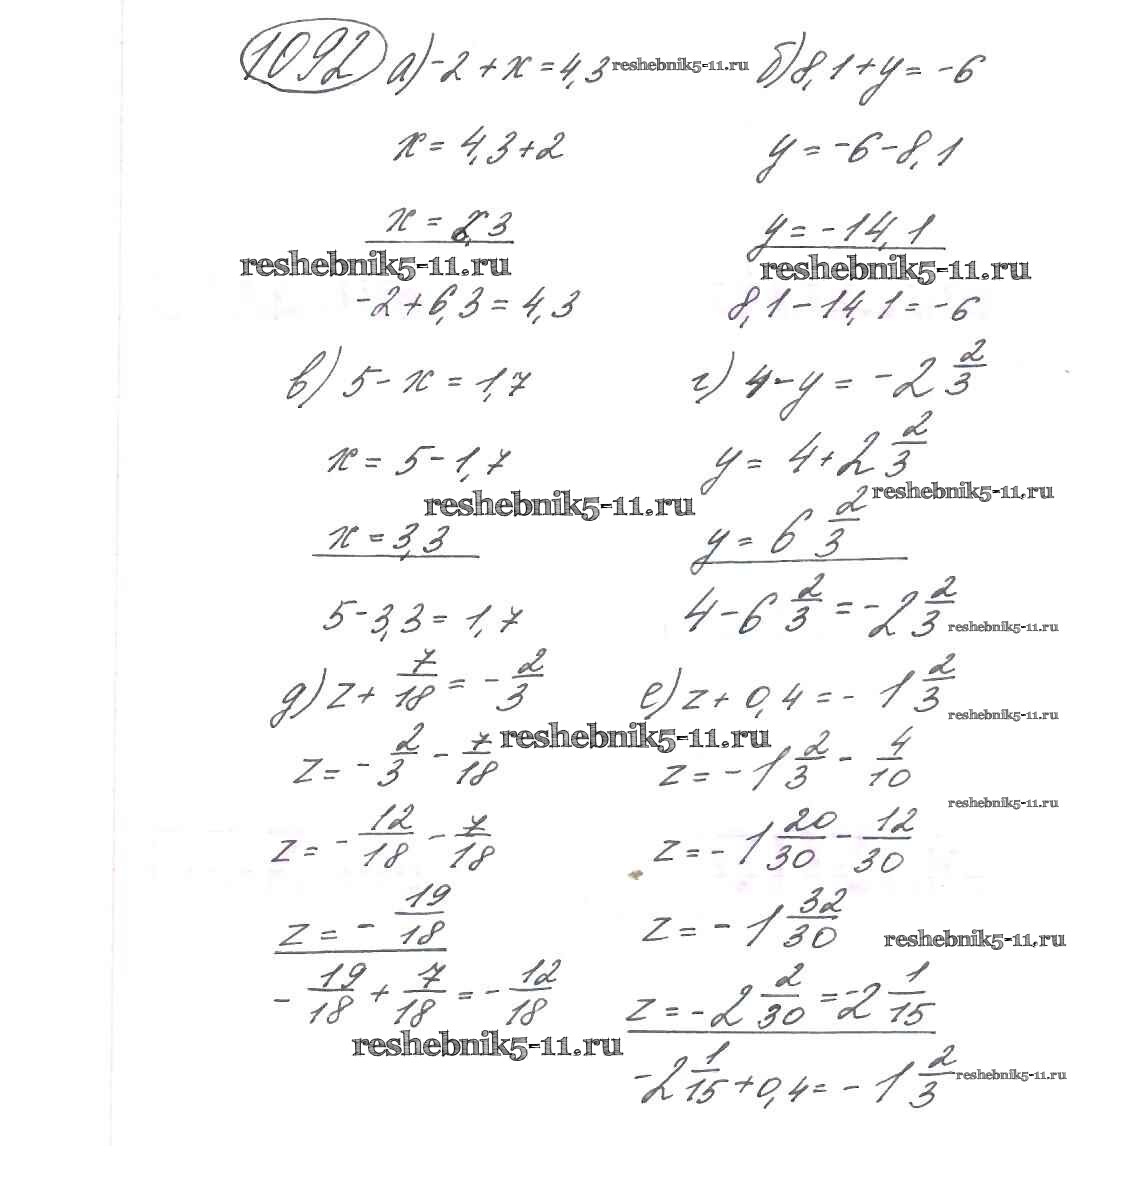 1092 а) -2 + x = 4,3 reshebnik5-11.ru б) 8,1 + y = -6
x = 4,3 + 2 y = -6 - 8,1
x = 6,3 y = -14,1
reshebnik5-11.ru reshebnik5-11.ru
-2 + 6,3 = 4,3 8,1 - 14,1 = -6
в) 5 - x = 1,7 г) 4 - y = -2 2/3
x = 5 - 1,7 y = 4 + 2 2/3
reshebnik5-11.ru reshebnik5-11.ru
x = 3,3 y = 6 2/3
5 - 3,3 = 1,7 4 - 6 2/3 = -2 2/3 reshebnik5-11.ru
д) z + 7/18 = -2/3 е) z + 0,4 = -1 2/3 reshebnik5-11.ru
reshebnik5-11.ru
z = -2/3 - 7/18 z = -1 2/3 - 4/10
reshebnik5-11.ru
z = -12/18 - 7/18 z = -1 20/30 - 12/30
z = -19/18 z = -1 32/30 reshebnik5-11.ru
-19/18 + 7/18 = -12/18 z = -2 2/30 = -2 1/15
reshebnik5-11.ru
-2 1/15 + 0,4 = -1 2/3 reshebnik5-11.ru